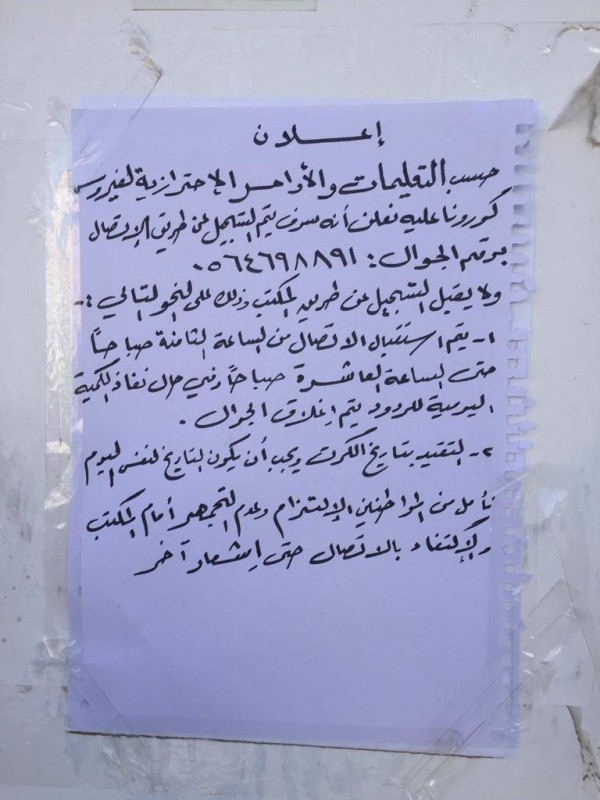 إعلان
حسب التعليمات والأوامر الإحترازية لفيروس
كورونا عليه نعلن أنه سوف يتم التسجيل عن طريق الإتصال
برقم الجوال : ٠٥٦٤٦٩٨٨٩١
ولا يقبل التسجيل عن طريق المكتب وذلك على النحو التالي :-
١- يتم استقبال الاتصال من الساعة الثامنة صباحاً
حتى الساعة العاشرة صباحاً وفي حال نفاذ الكمية
اليومية للردود يتم إغلاق الجوال .
٢- التقيد بتاريخ الكرت ويجب أن يكون التاريخ لنفس اليوم
نأمل من المواطنين الإلتزام وعدم التجمهر أمام المكتب
والإكتفاء بالاتصال حتى إشعار آخر